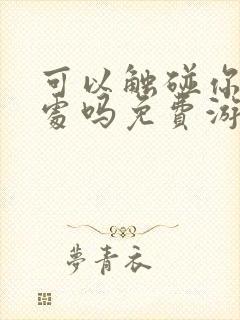 可以触碰你
处吗免費游
夢青衣